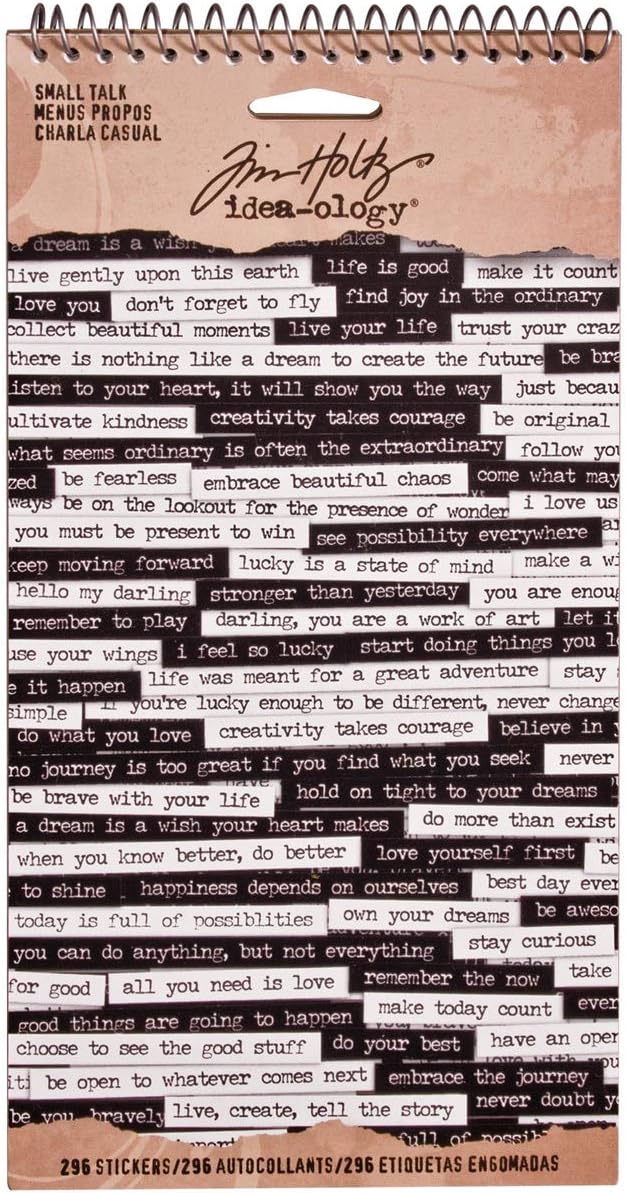 SMALL TALK
MENUS PROPOS
CHARLA CASUAL
Tim Holtz®
idea-ology®
a dream is a wish heart makes
live gently upon this earth life is good make it count
love you don't forget to fly find joy in the ordinary
collect beautiful moments live your life trust your craz
there is nothing like a dream to create the future be bra
listen to your heart, it will show you the way just becau
ultivate kindness creativity takes courage be original
what seems ordinary is often the extraordinary follow you
zed be fearless embrace beautiful chaos come what may
ways be on the lookout for the presence of wonder i love us
you must be present to win see possibility everywhere
keep moving forward lucky is a state of mind make a wi
hello my darling stronger than yesterday you are enoug
remember to play darling, you are a work of art let it
use your wings i feel so lucky start doing things you lo
e it happen life was meant for a great adventure stay
simple if you're lucky enough to be different, never change
do what you love creativity takes courage believe in y
no journey is too great if you find what you seek never
be brave with your life hold on tight to your dreams
a dream is a wish your heart makes do more than exist
when you know better, do better love yourself first be
to shine happiness depends on ourselves best day ever
today is full of possiblities own your dreams be aweso
you can do anything, but not everything stay curious
for good all you need is love remember the now take
good things are going to happen make today count ever
choose to see the good stuff do your best have an open
iti be open to whatever comes next embrace the journey
be you, bravely live, create, tell the story never doubt yo
full of possib
296 STICKERS/296 AUTOCOLLANTS/296 ETIQUETAS ENGOMADAS